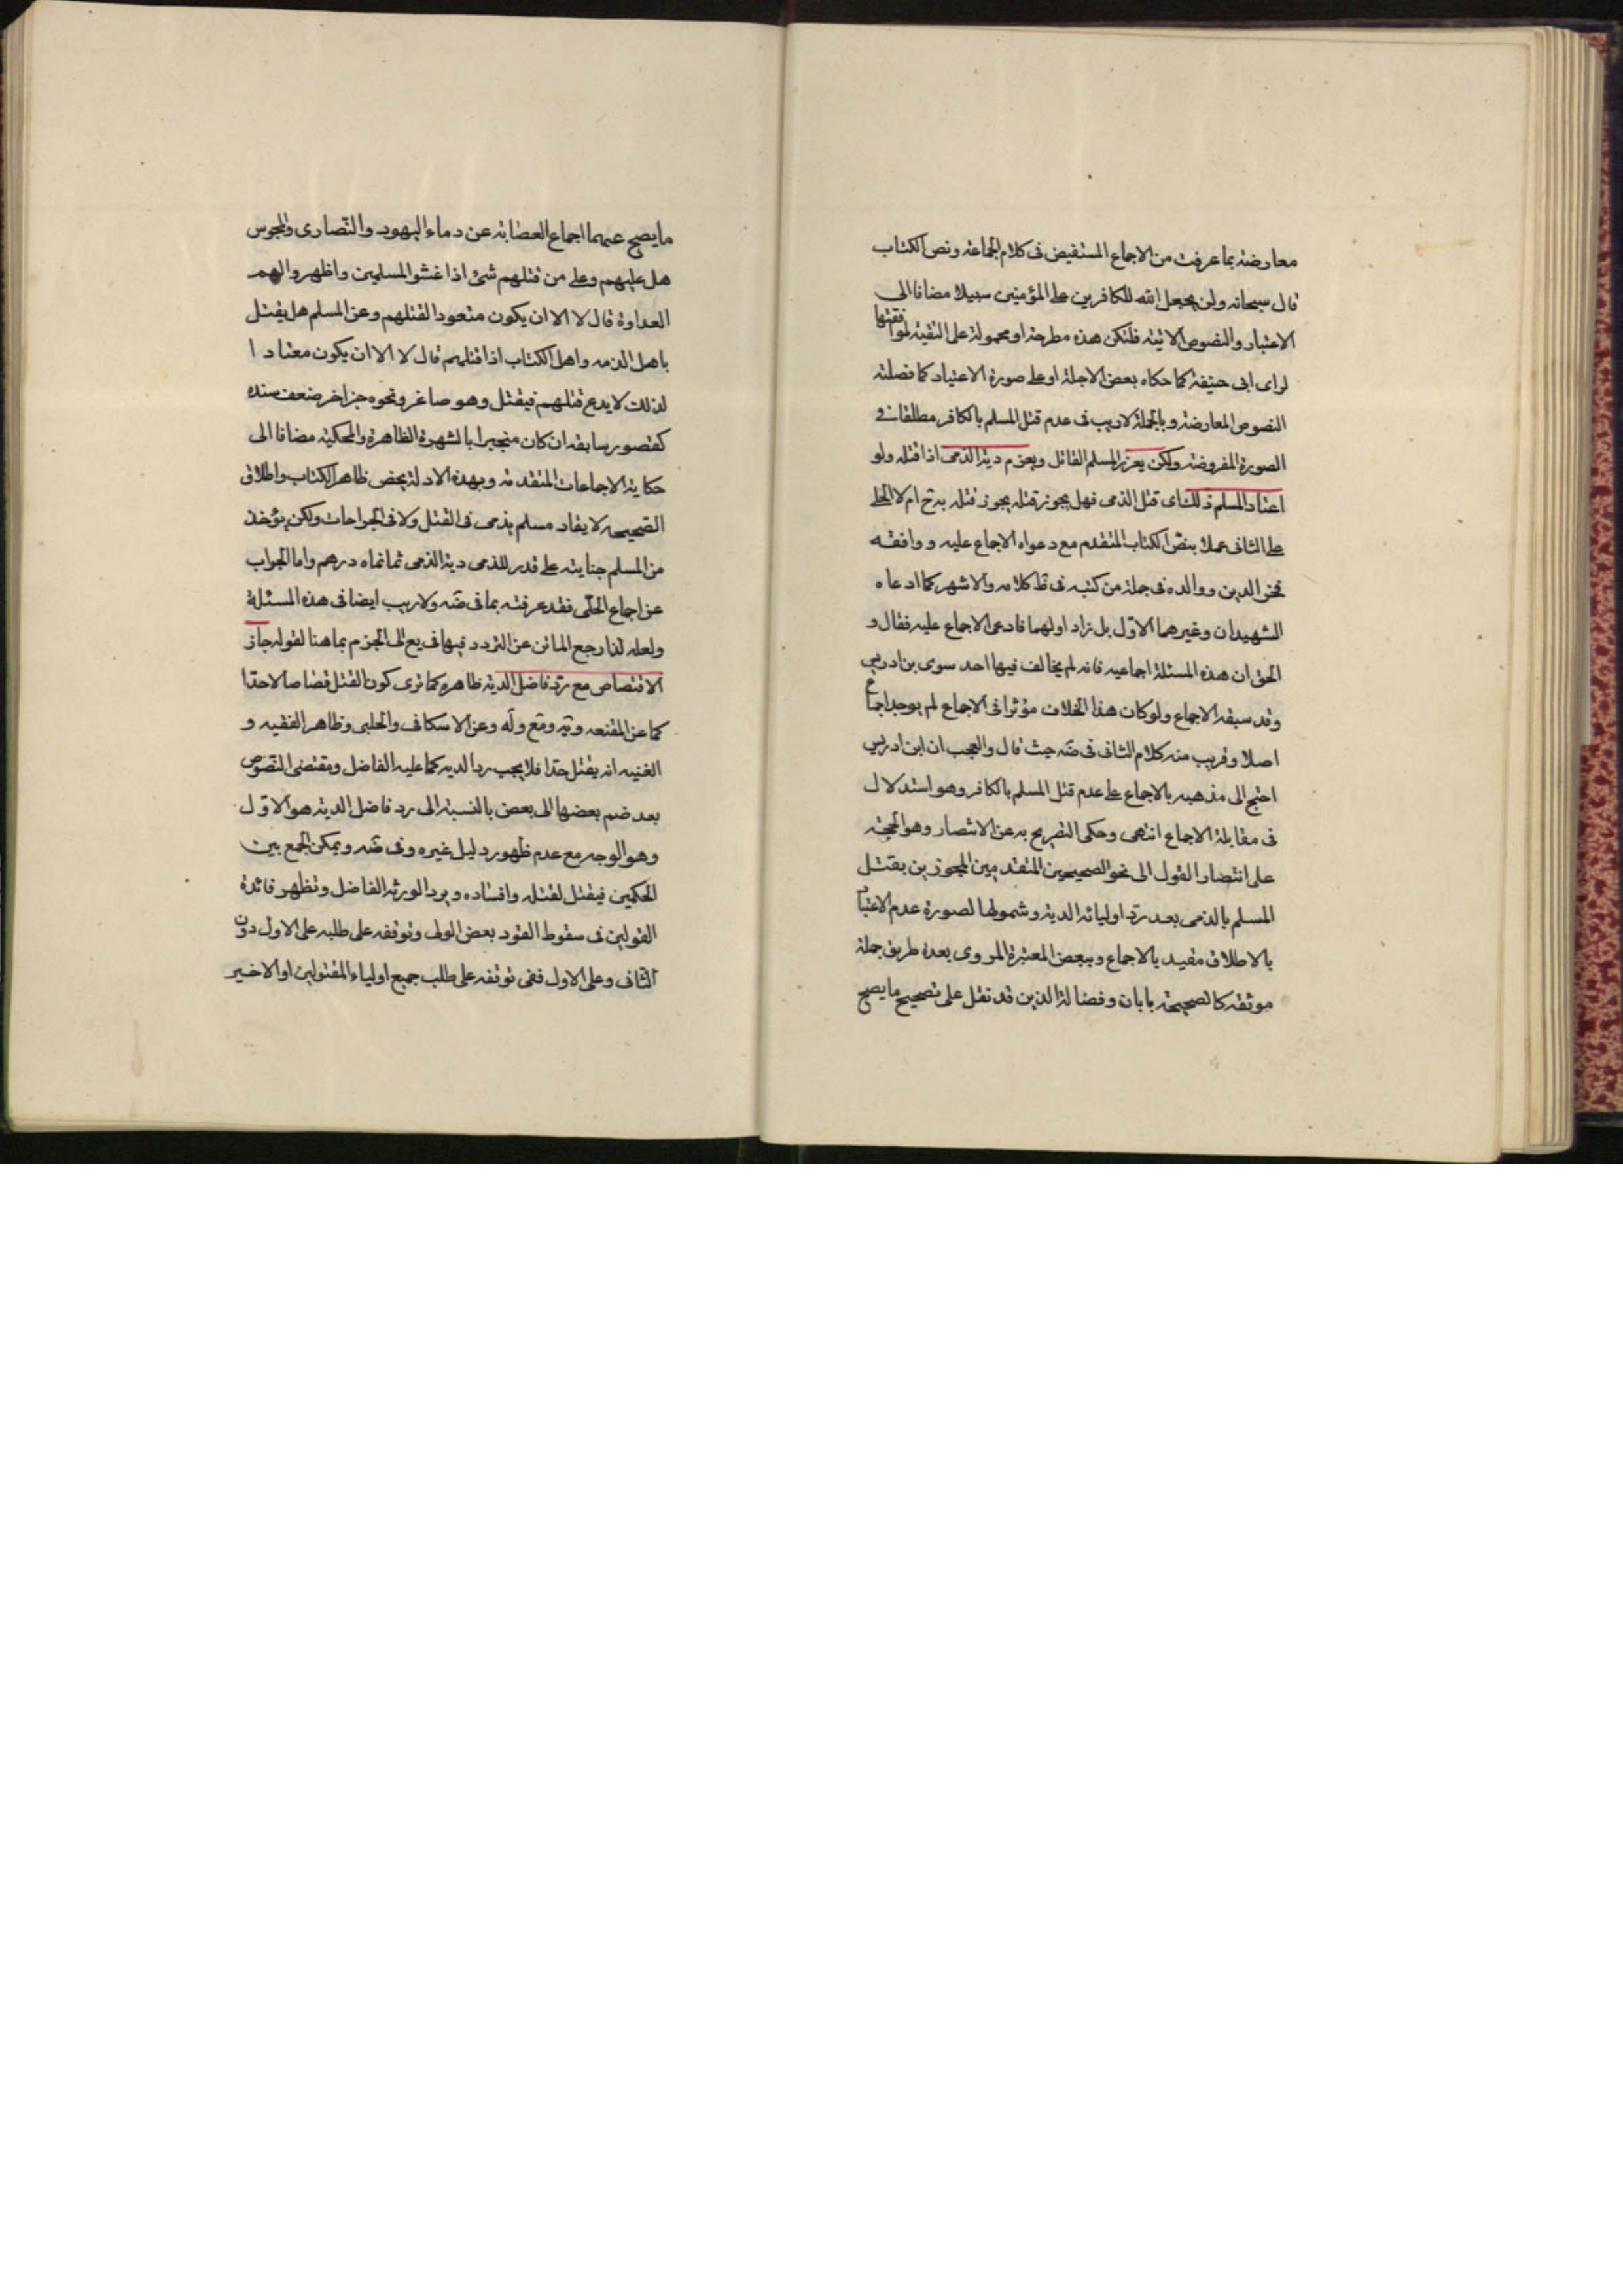 معارضة بما عرفت من الاجماع المستفيض فى كلام الجماعة ونص الكتاب
قال سبحانه ولن يجعل الله للكافرين على المؤمنين سبيلا مضافا الى
الاعتبار والنصوص الاتية فلتكن هذه مطرحة او محمولة على التقية لموافقتها
لراى ابى حنيفة كما حكاه بعض الاجلة او على صورة الاعتياد كما فصلته
النصوص المعارضة وبالجملة لاريب فى عدم قتل المسلم بالكافر مطلقا فى
الصورة المفروضة ولكن يعزر المسلم القاتل ويغرم دية الذمى اذا قتله ولو
اعتاد المسلم ذلك اى قتل الذمى فهل يجوز قتله يجوز قتله به ح ام لا الحلى
على الثانى عملا بنص الكتاب المتقدم مع دعواه الاجماع عليه ووافقه
فخر الدين ووالده فى جملة من كتبه فى ظ كلامه والاشهر كما ادعاه
الشهيدان وغيرهما الاول بل زاد اولهما فادعى الاجماع عليه فقال و
الحق ان هذه المسئلة اجماعيه فانه لم يخالف فيها احد سوى بن ادريس
وقد سبقه الاجماع ولو كان هذا الخلاف مؤثرا فى الاجماع لم يوجد اجماع
اصلا وقريب منه كلام الثانى فى ضه حيث قال والعجب ان ابن ادريس
احتج الى مذهبه بالاجماع على عدم قتل المسلم بالكافر وهو استدلال
فى مقابلة الاجماع انتهى وحكى التصريح به عن الانتصار وهو الحجة
على انتصار القول الى نحو الصحيحين المتقدمين المجوزين بقتل
المسلم بالذمى بعد رد اوليائه الدية وشمولها لصورة عدم الاعتياد
بالاطلاق مقيد بالاجماع وببعض المعتبرة المروى بعدة طريق جملة
موثقه كالصحيحة بابان وفضالة الذين قد نقل على تصحيح ما يصح
ما يصح عنهما اجماع العصابة عن دماء اليهود والنصارى والمجوس
هل عليهم وعلى من قتلهم شئ اذا غشوا المسلمين واظهروا لهم
العداوة قال لا الا ان يكون متعودا لقتلهم وعن المسلم هل يقتل
باهل الذمه واهل الكتاب اذا قتلهم قال لا الا ان يكون معتادا
لذلك لا يدع قتلهم فيقتل وهو صاغر ونحوه خبر اخر ضعف سنده
كقصور سابقه ان كان منجبرا بالشهرة الظاهرة والمحكية مضافا الى
حكاية الاجماعات المتقدمة وبهذه الادلة يخص ظاهر الكتاب واطلاق
الصحيحه لا يقاد مسلم بذمى فى القتل ولا فى الجراحات ولكن يؤخذ
من المسلم جنايته على قدر للذمى دية الذمى ثمانماه درهم واما الجواب
عن اجماع الحلى فقد عرفته بما فى ضه ولاريب ايضا فى هذه المسئلة
ولعله لذا رجع الماتن عن التردد فيها فى يع الى الجزم بما هنا لقوله جاز
الاقتصاص مع رد فاضل الدية ظاهره كما ترى كون القتل قصاصا لا حدا
كما عن المقنعه ويه ومع وله وعن الاسكافى والحلبى وظاهر الفقيه و
الغنيه انه يقتل حدا فلا يجب رد الديه كما عليه الفاضل ومقتضى النصوص
بعد ضم بعضها الى بعض بالنسبة الى رد فاضل الدية هو الاول
وهو الوجه مع عدم ظهور دليل غيره وفى ضه ويمكن الجمع بين
الحكمين فيقتل لقتله وافساده ويرد الورثه الفاضل وتظهر فائدة
القولين فى سقوط القود بعض الولى وتوقفه على طلبه على الاول دون
الثانى وعلى الاول ففى توقفه على طلب جميع اولياء المقتولين او الاخير